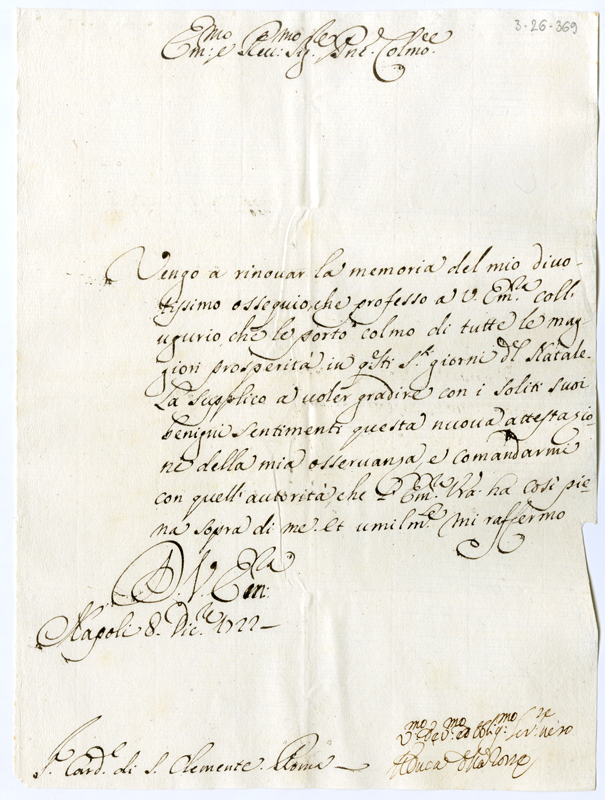 3-26-369
Em:mo e Reu:mo Sig:re Pne. Colmo.
Vengo a rinouar la memoria del mio diuo-
tissimo ossequio, che professo a V. Em.za coll'
ugurio, che le porto colmo di tutte le mag-
giori prosperità in q.sti S.ti giorni d'l Natale.
La supplico a uoler gradire con i soliti suoi
benigni sentimenti questa nuoua attestazio-
ne della mia osseruanza, e comandarmi
con quell'autorità che Em.za Vra. ha così pie-
na sopra di me. Et umilm.e mi raffermo
D. V. Em:za
Napoli 8. Dic.re 1722 -
S.r Card.l di S. Clemente. Roma -
ser. uero
Il Duca